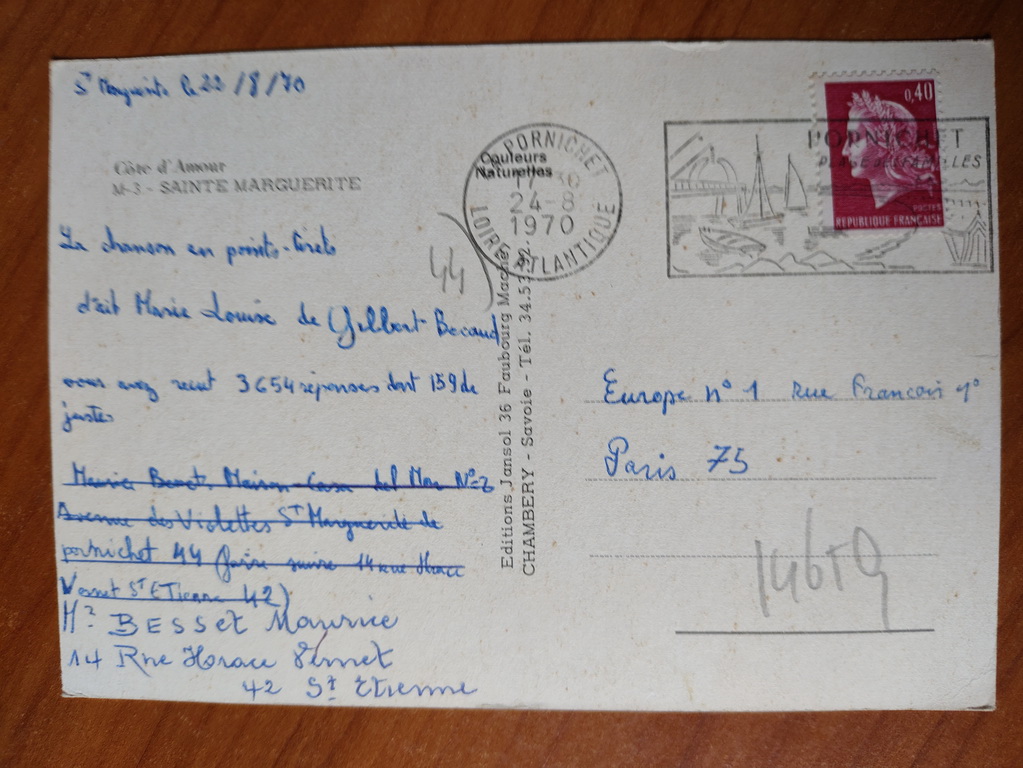 St Marguerite le 22/8/70
Côte d'Amour
M-3 - SAINTE MARGUERITE
La chanson en points-tirets
était Marie Louise de Gilbert Becaud
vous avez recut 3654 réponses dont 159 de
justes
Maurice Besset Maison Casa del Mar N°2
Avenue des Violettes St Marguerite de
pornichet 44 (faire suivre 14 rue Horace
Vernet St Etienne 42)
Mr BESSET Maurice
14 Rue Horace Vernet
42 St Etienne
44
Couleurs
Naturelles
PORNICHET
17-30
24-8
1970
LOIRE ATLANTIQUE
Editions Jansol 36 Faubourg Maché
CHAMBERY - Savoie - Tél. 34.53
PORNICHET
PLAGE FAMILLES
0,40
POSTES
REPUBLIQUE FRANÇAISE
Europe n° 1 rue Francois 1°
Paris 75